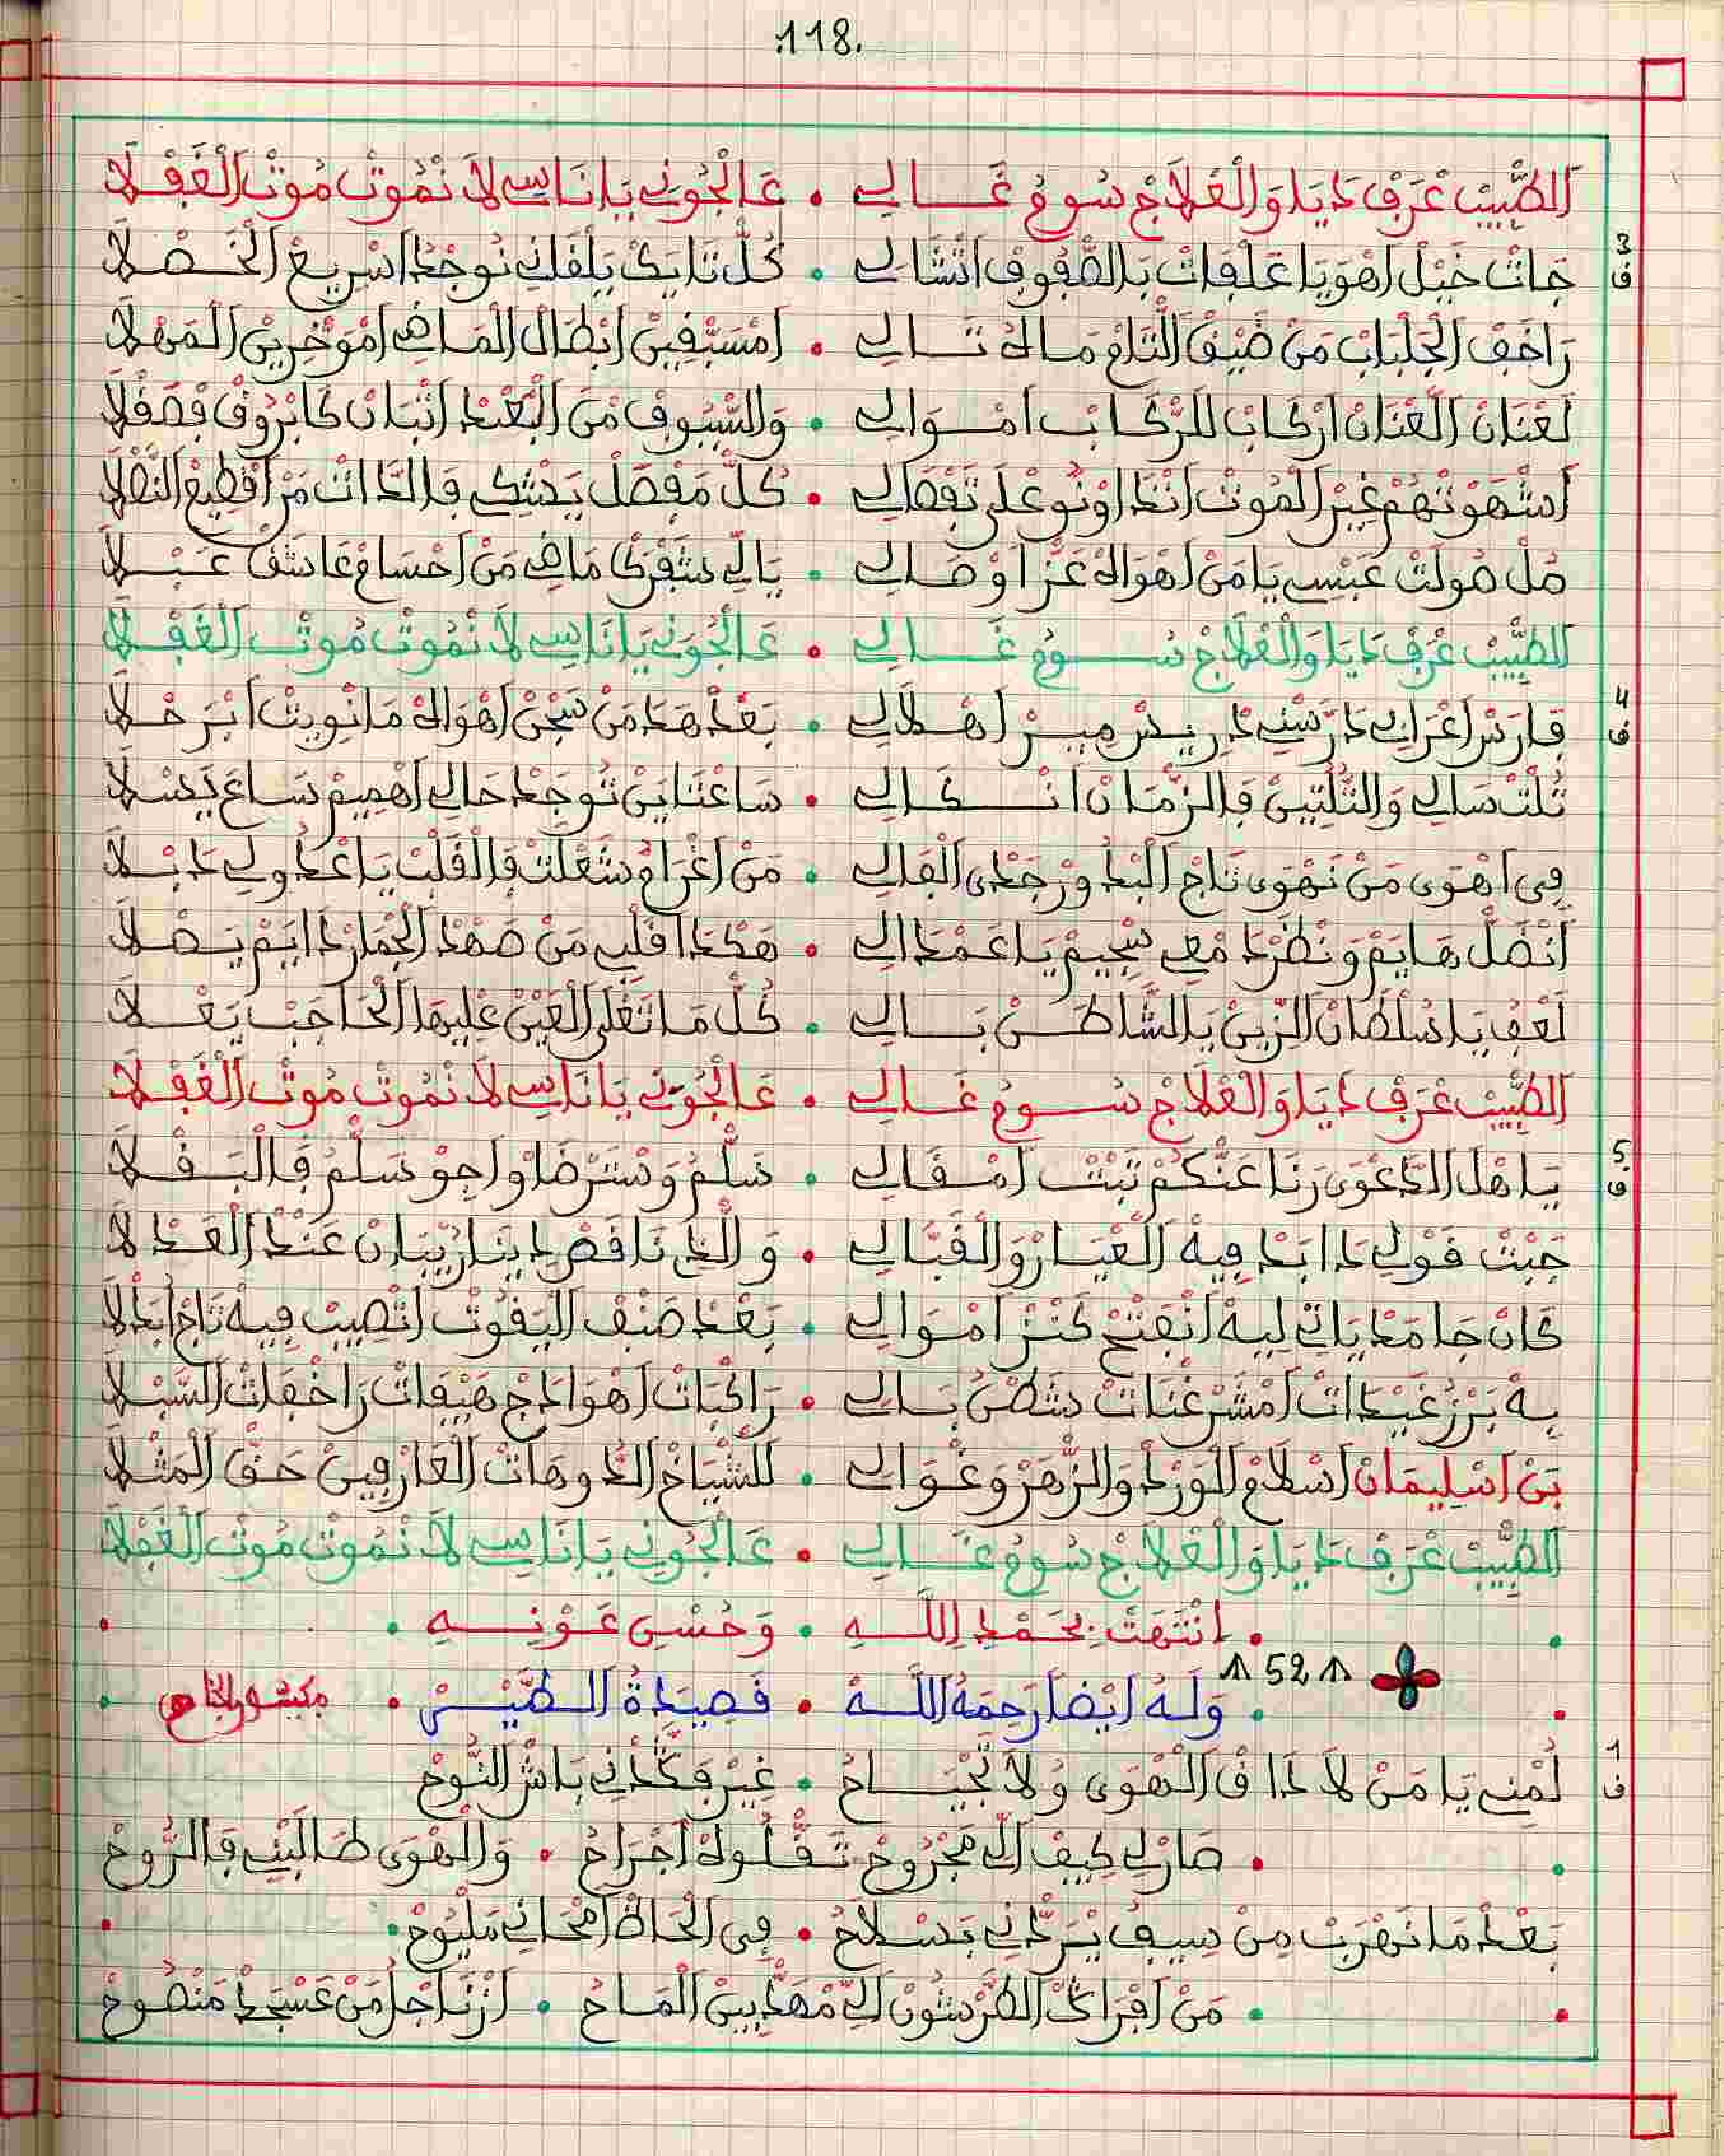 118.
الطَّبِيبْ عْرَفْ دَايَا وَالْعْلاَجْ سُومُ غَالِي • عَالْجُونِي يَا نَاسِي لاَ نْمُوتْ مُوتْ الْغَفْلاَ
3 ف
جَاتْ خَيْلْ اهْوَايَا عَلْفَاتْ بَالصّْفُوفْ انْشَالِي • كُلّْ تَايَكْ يَلْقَانِي نُوجْدُ اسْرِيعْ الْخَصْلاَ
رَاخَفْ الْجَلْبَابْ مَنْ ضَيْقْ اللّْتَامْ مَا لهُ تَالِي • امْسَبّْقِينْ ابْطَالْ الْمَاضِي امْوَخْرِينْ الْمَهْلاَ
لَعْنَانْ الْعْنَانْ ارْكَابْ للرّْكَابْ امْوَالِي • وَالسّْيُوفْ مَنْ الْبُعْدْ اتْبَانْ كَابْرُوقْ فْصَقْلاَ
اشْهَوْتْهُمْ غِيرْ الْمُوتْ انْدَاوْنُو عْلَى تَفْصَالِي • كُلّْ مَفْصَلْ يَشْكِي فَالدَّاتْ مَرْ اقْطِيعْ النَّصْلاَ
مُلْ صُولَتْ عَبْسِي يَا مَنْ اهْوَاكْ عَزْ اوْصَالِي • يَا لِّي شَقْرَكْ مَاضِي مَنْ احْسَامْ عَاشَقْ عَبْلاَ
الطَّبِيبْ عْرَفْ دَايَا وَالْعْلاَجْ سُومُ غَالِي • عَالْجُونِي يَا نَاسِي لاَ نْمُوتْ مُوتْ الْغَفْلاَ
4 ف
فَارَسْ اعْرَابِي دَارَسْنِي دْرِيسْ مِيسْ اهْلاَلِي • بَعْدْ هَدَ مَنْ سَجْنْ اهْوَاكْ مَا نْوِيتْ ابْرَحْلاَ
تُلْتْ سَالِي وَالتُّلْتِينْ فَالزّْمَانْ انْكَالِي • سَاعْتَايَنْ نُوجَدْ حَالِي اهْمِيمْ سَاعَ يَسْلاَ
فِي اهْوَى مَنْ نَهْوَى تَاجْ الْبْدُورْ جَدْيْ الْفَالِي • مَنْ اغْرَامُ شَعْلَتْ فَالْقَلْبْ يَا عْدُولِي دَبْلاَ
انْضَلّْ هَايَمْ وَنْظَرْدْ مْعَ سْجِيمْ يَا عَمْدَالِي • هَكْدَا قَلْبِي مَنْ صَهْدْ الْجْمَارْ دَايَمْ يَصْلاَ
لَعْفُ يَا سُلْطَانْ الزِّينْ يَا لشَّاطَنْ بَالِي • كُلّْ مَا تَعْلَى الْعَيْنْ عْلِيهَا الْحَاجَبْ يَعْلاَ
الطَّبِيبْ عْرَفْ دَايَا وَالْعْلاَجْ سُومُ غَالِي • عَالْجُونِي يَا نَاسِي لاَ نْمُوتْ مُوتْ الْغَفْلاَ
5 ف
يَاهْلْ الدَّعْوَى رَنَا عَنّْكُمْ تَبْتْ امْقَالِي • سَلّْمُ وَسْتَرْضَاوْ اجِوْ سَلّْمُ فَالْبَقْلاَ
جَبْتْ قَوْلِي دَا ابَدْ فِيهْ الْعْيَارْ وَالْقَبَّالِي • وَالدِّي نَاقَصْ دِينَارْ يْبَانْ عَنْدْ الْعَدْلاَ
كَانْ جَامَدْ يَاتِي لِيهْ انْفَتْحْ كَنْزْ امْوَالِي • بَعْدْ صَنْفْ الْيَقُوتْ اتْصِيبْ فِيهْ تَاجْ ابْدَالاَ
بِهْ بَرْزُ غَيْدَاتْ امْشَرْغْنَاتْ شَطْنُ بَالِي • رَاكْبَاتْ اهْوَادَجْ هَيْفَاتْ رَاخْفَاتْ السَّبْلاَ
بَنْ اسْلِيمَانْ اسْلاَمُ الْوَرْدْ وَالزّْهَرْ وَغْوَالِي • للشّْيَاخْ الدُّوهَاتْ الْعَارْفِينْ حَقّْ الْمَثْلاَ
الطَّبِيبْ عْرَفْ دَايَا وَالْعْلاَجْ سُومُ غَالِي • عَالْجُونِي يَا نَاسِي لاَ نْمُوتْ مُوتْ الْغَفْلاَ
• انْتَهَتْ بِحَمْدِ اللَّهِ • وَحُسْنِ عَوْنِهِ •
52
• وَلَهُ ايْضا رَحِمَهُ اللَّهُ • قَصِيدَةُ الطَّيْرْ • مكسور الجناح
1 ف
لَمْنِي يَا مَنْ لاَ دَاقْ الْهْوَى وُلاَ تَجْيَاحُ • غِيرْ فَكّْدْنِي بَاشْ النُّوحْ
• صَارْ لِي كِيفْ الِّي مَجْرُوحْ تَقّْلُو لهْ اجْرَاحُ • وَالْهْوَى طَالَبْنِي فَالرُّوحْ
بَعْدْ مَا نَهْرَبْ مِنْ سِيفُ يْرَدّْنِي بَسْلاَحُ • فِي الْحَاظْ امْحَانِي مَلْيُوحْ
• مَنْ افْرَاكْ الطَّرْشُونْ الِّي مْهَدّْبِينْ الْمَاحُ • ارْنَاجْلْ مَنْ عَسْجَدْ مَنْصُوحْ